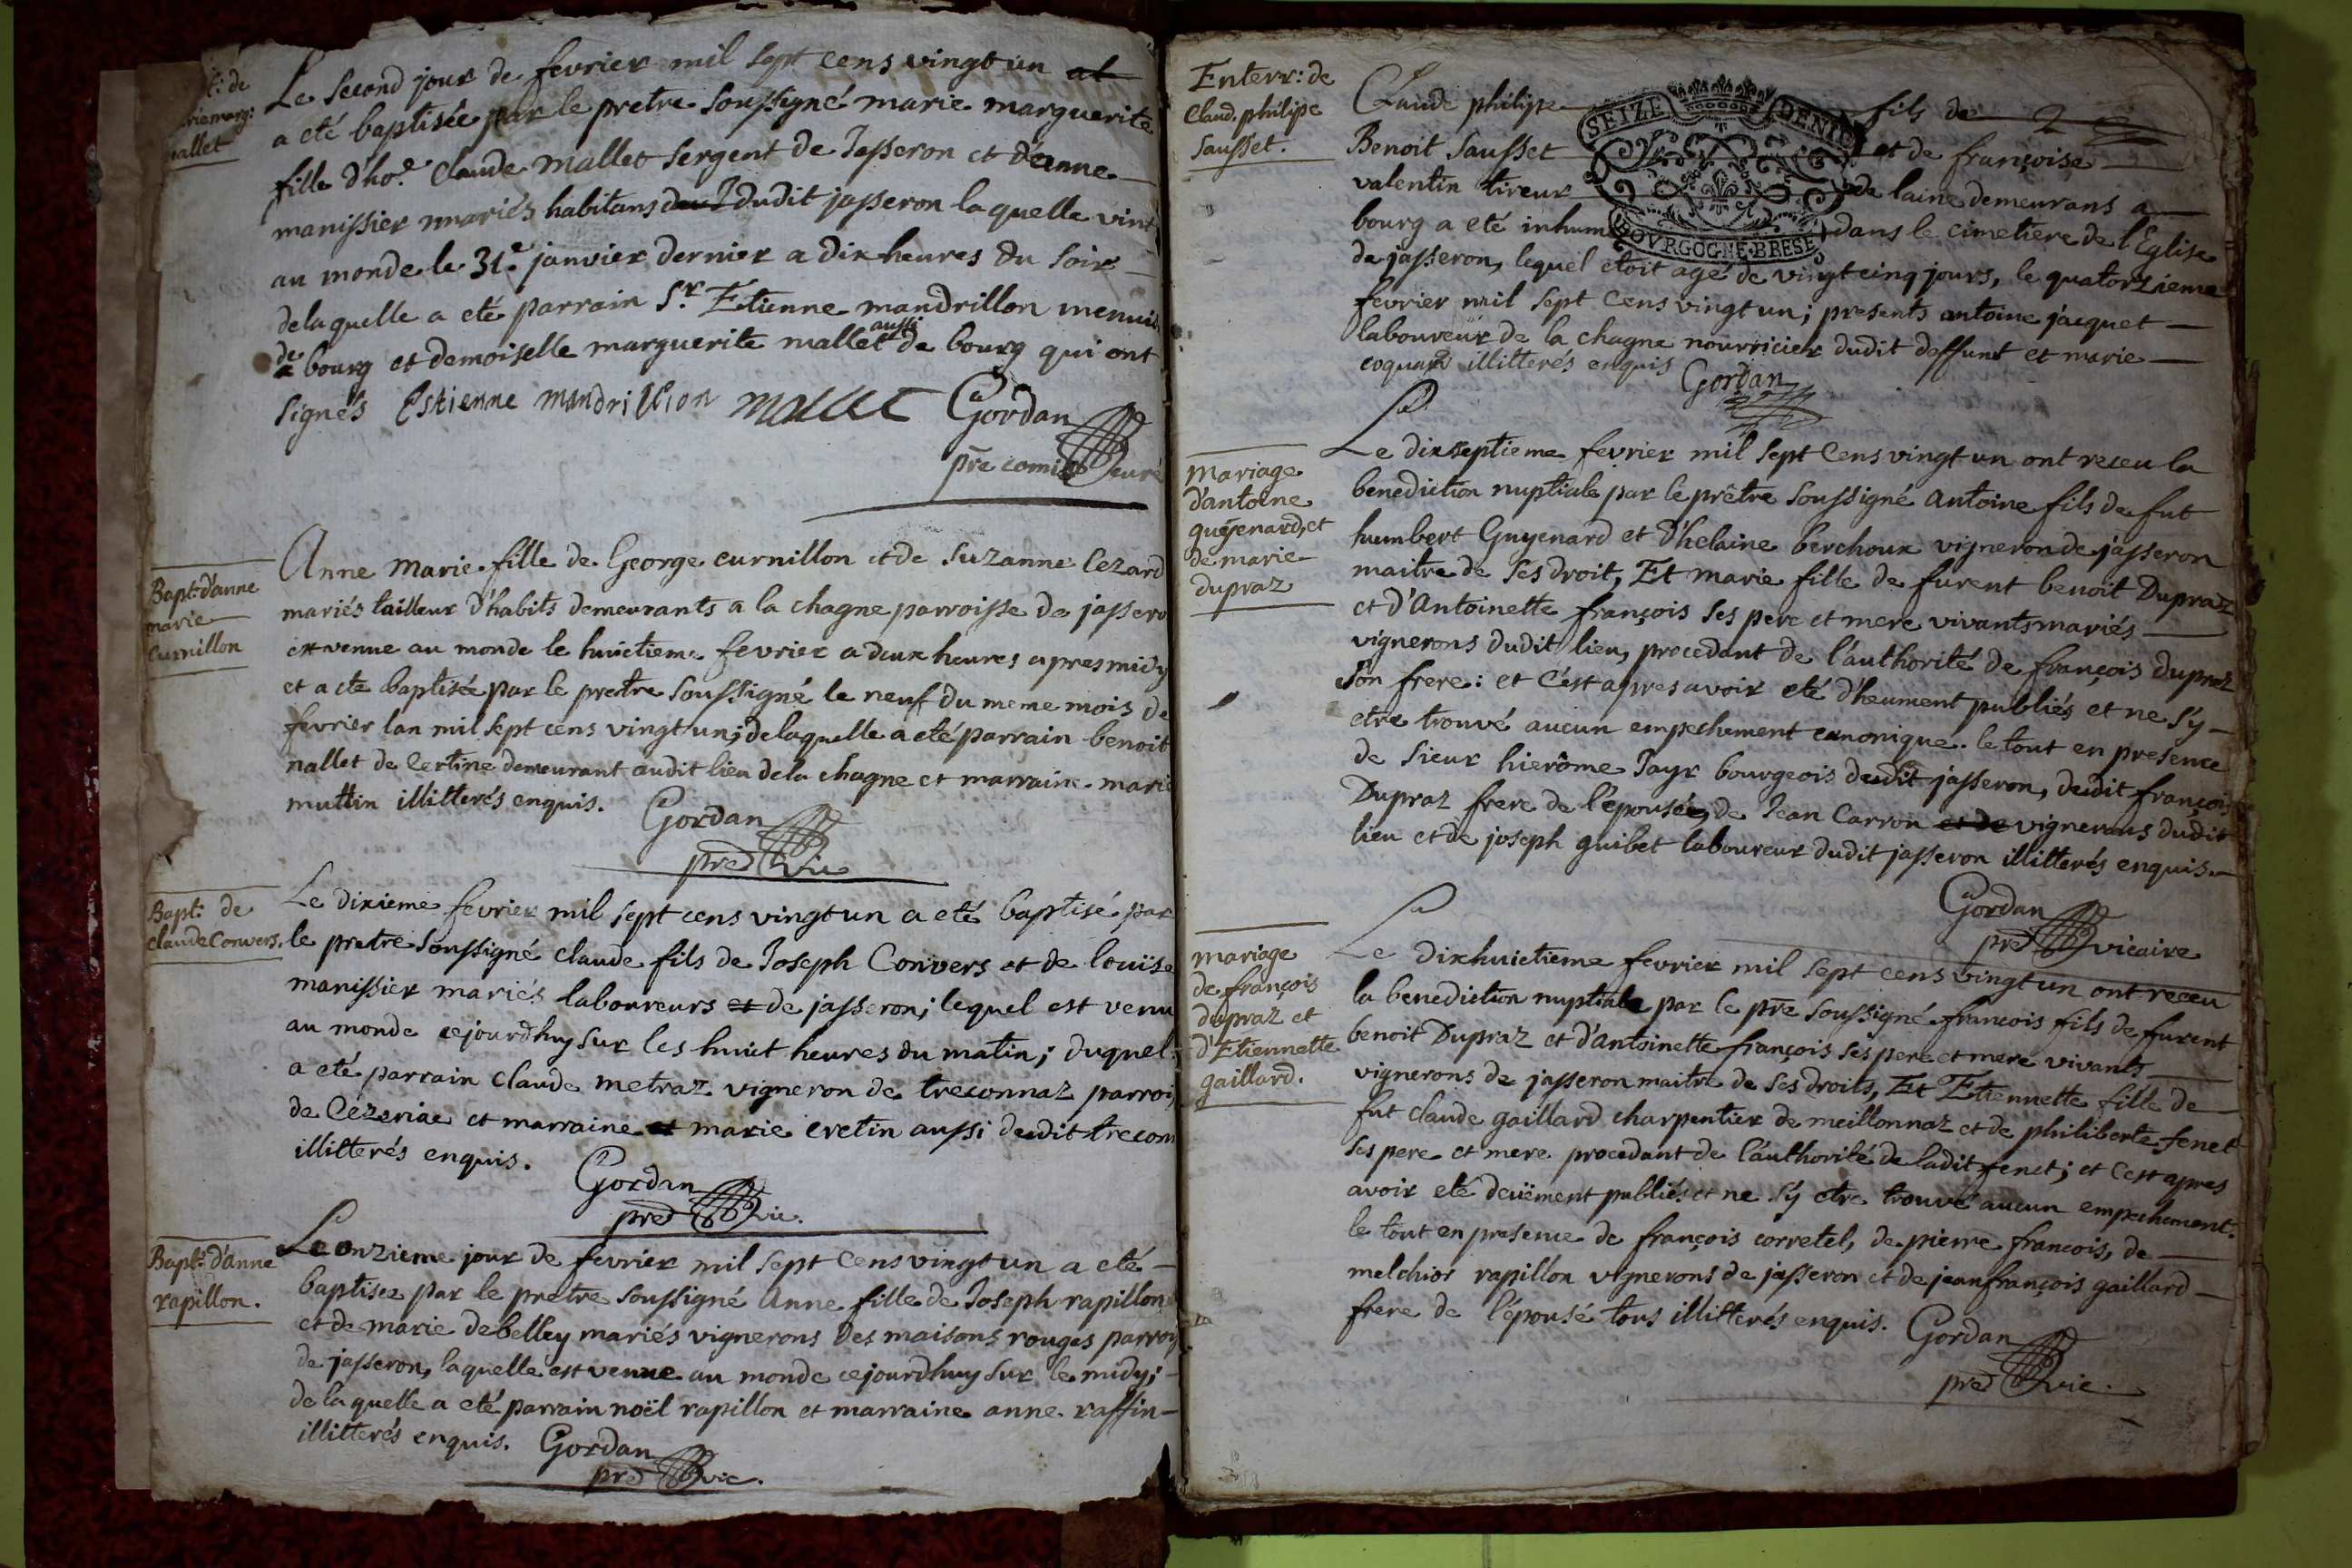 : de
riemarg:
allet
Le second jour de fevrier mil sept cens vingt un
a eté baptisée par le pretre soussigné marie marguerite
fille d'ho.e Claude mallet sergent de Jasseron et d'anne
manissier mariés habitans dudit jasseron laquelle vint
au monde le 31.e janvier dernier a dix heures du soir
delaquelle a eté parrain S.r Etienne mandrillon menuis
de bourg et demoiselle marguerite mallet aussi de bourg qui ont
signés Estienne mandrillion mallet Gordan
pre comis curé
Bapt: d'anne
marie
Curnillon
Anne marie fille de George curnillon et de Suzanne Cezard
mariés tailleur d'habits demeurants a la chagne parroisse de jassero
est venue au monde le huictieme fevrier a deux heures apres midy
et a eté baptisée par le prestre soussigné le neuf du meme mois de
fevrier lan mil sept cens vingt un; delaquelle a eté parrain benoit
nallet de Certine demeurant audit lieu dela chagne et marraine marie
muttin illitterés enquis. Gordan
pred vic
Bapt: de
claude Convers.
Le dixieme fevrier mil sept cens vingt un a eté baptisé par
le pretre soussigné claude fils de Joseph Convers et de louïse
manissier mariés laboureurs de jasseron; lequel est venu
au monde cejourdhuy sur les huict heures du matin; duquel
a eté parrain claude metraz vigneron de treconnaz parroi
de Cézeriac et marraine marie cretin aussi dudit trecon
illitterés enquis. Gordan
pred vic.
Bapt: d'anne
rapillon.
Le onzieme jour de fevrier mil sept cens vingt un a eté
baptisez par le pretre soussigné Anne fille de Joseph rapillon
et de marie debelley mariés vignerons des maisons rouges parroi
de jasseron, laquelle est venue au monde cejourdhuy sur le midy;
de laquelle a eté parrain noël rapillon et marraine anne raffin
illitterés enquis. Gordan
pred vic.
Enterr: de
Claud. philipe
Sausset.
SEIZE DENIE
BOVRGOGNE·BRESE
Claude philipe fils de
Benoit Sausset et de françoise
valentin tireur de laine demeurans a
bourg a eté inhum dans le cimetiere de l'Eglise
de jasseron, lequel etoit agé de vingt cinq jours, le quatorzieme
fevrier mil sept cens vingt un; presents antoine jacquet
laboureur de la chagne nourricier dudit deffunt et marie
coquard illitterés enquis Gordan
mariage
d'antoine
guyenard, et
de marie
dupraz
Le dixseptieme fevrier mil sept cens vingt un ont receu la
benediction nuptiale par le prêtre soussigné antoine fils de fut
humbert Guyenard et d'helaine berchoux vigneron de jasseron
maitre de ses droit, Et marie fille de furent benoit Dupraz
et d'Antoinette françois ses pere et mere vivants mariés
vignerons dudit lieu, procedant de l'authorité de françois dupraz
son frere: et c'est apres avoir eté d'heument publiés et ne s'y
etre trouvé aucun empechement canonique. le tout en presence
de sieur hierôme Jayr bourgeois dudit jasseron, dudit françois
Dupraz frere de l'épousée, de Jean Carron vignerons dudit
lieu et de joseph guibet laboureur dudit jasseron illitterés enquis.
Gordan
pred vicaire
mariage
de françois
dupraz et
d'Etiennette
gaillard.
Le dixhuictieme fevrier mil sept cens vingt un ont receu
la benediction nuptiale par le pre soussigné francois fils de furent
benoit Dupraz et d'antoinette françois ses pere et mere vivants
vignerons de jasseron maitre de ses droits, Et Etiennette fille de
fut claude gaillard charpentier de meillonnaz et de philiberte fenet
ses pere et mere procedant de l'authorité de ladit fenet; et c'est apres
avoir eté deüement publiés et ne s'y etre trouvé aucun empechement.
le tout en presence de françois corretel, de pierre francois, de
melchior rapillon vignerons de jasseron et de jean françois gaillard
frere de l'épousé tous illitterés enquis. Gordan
pred vic.